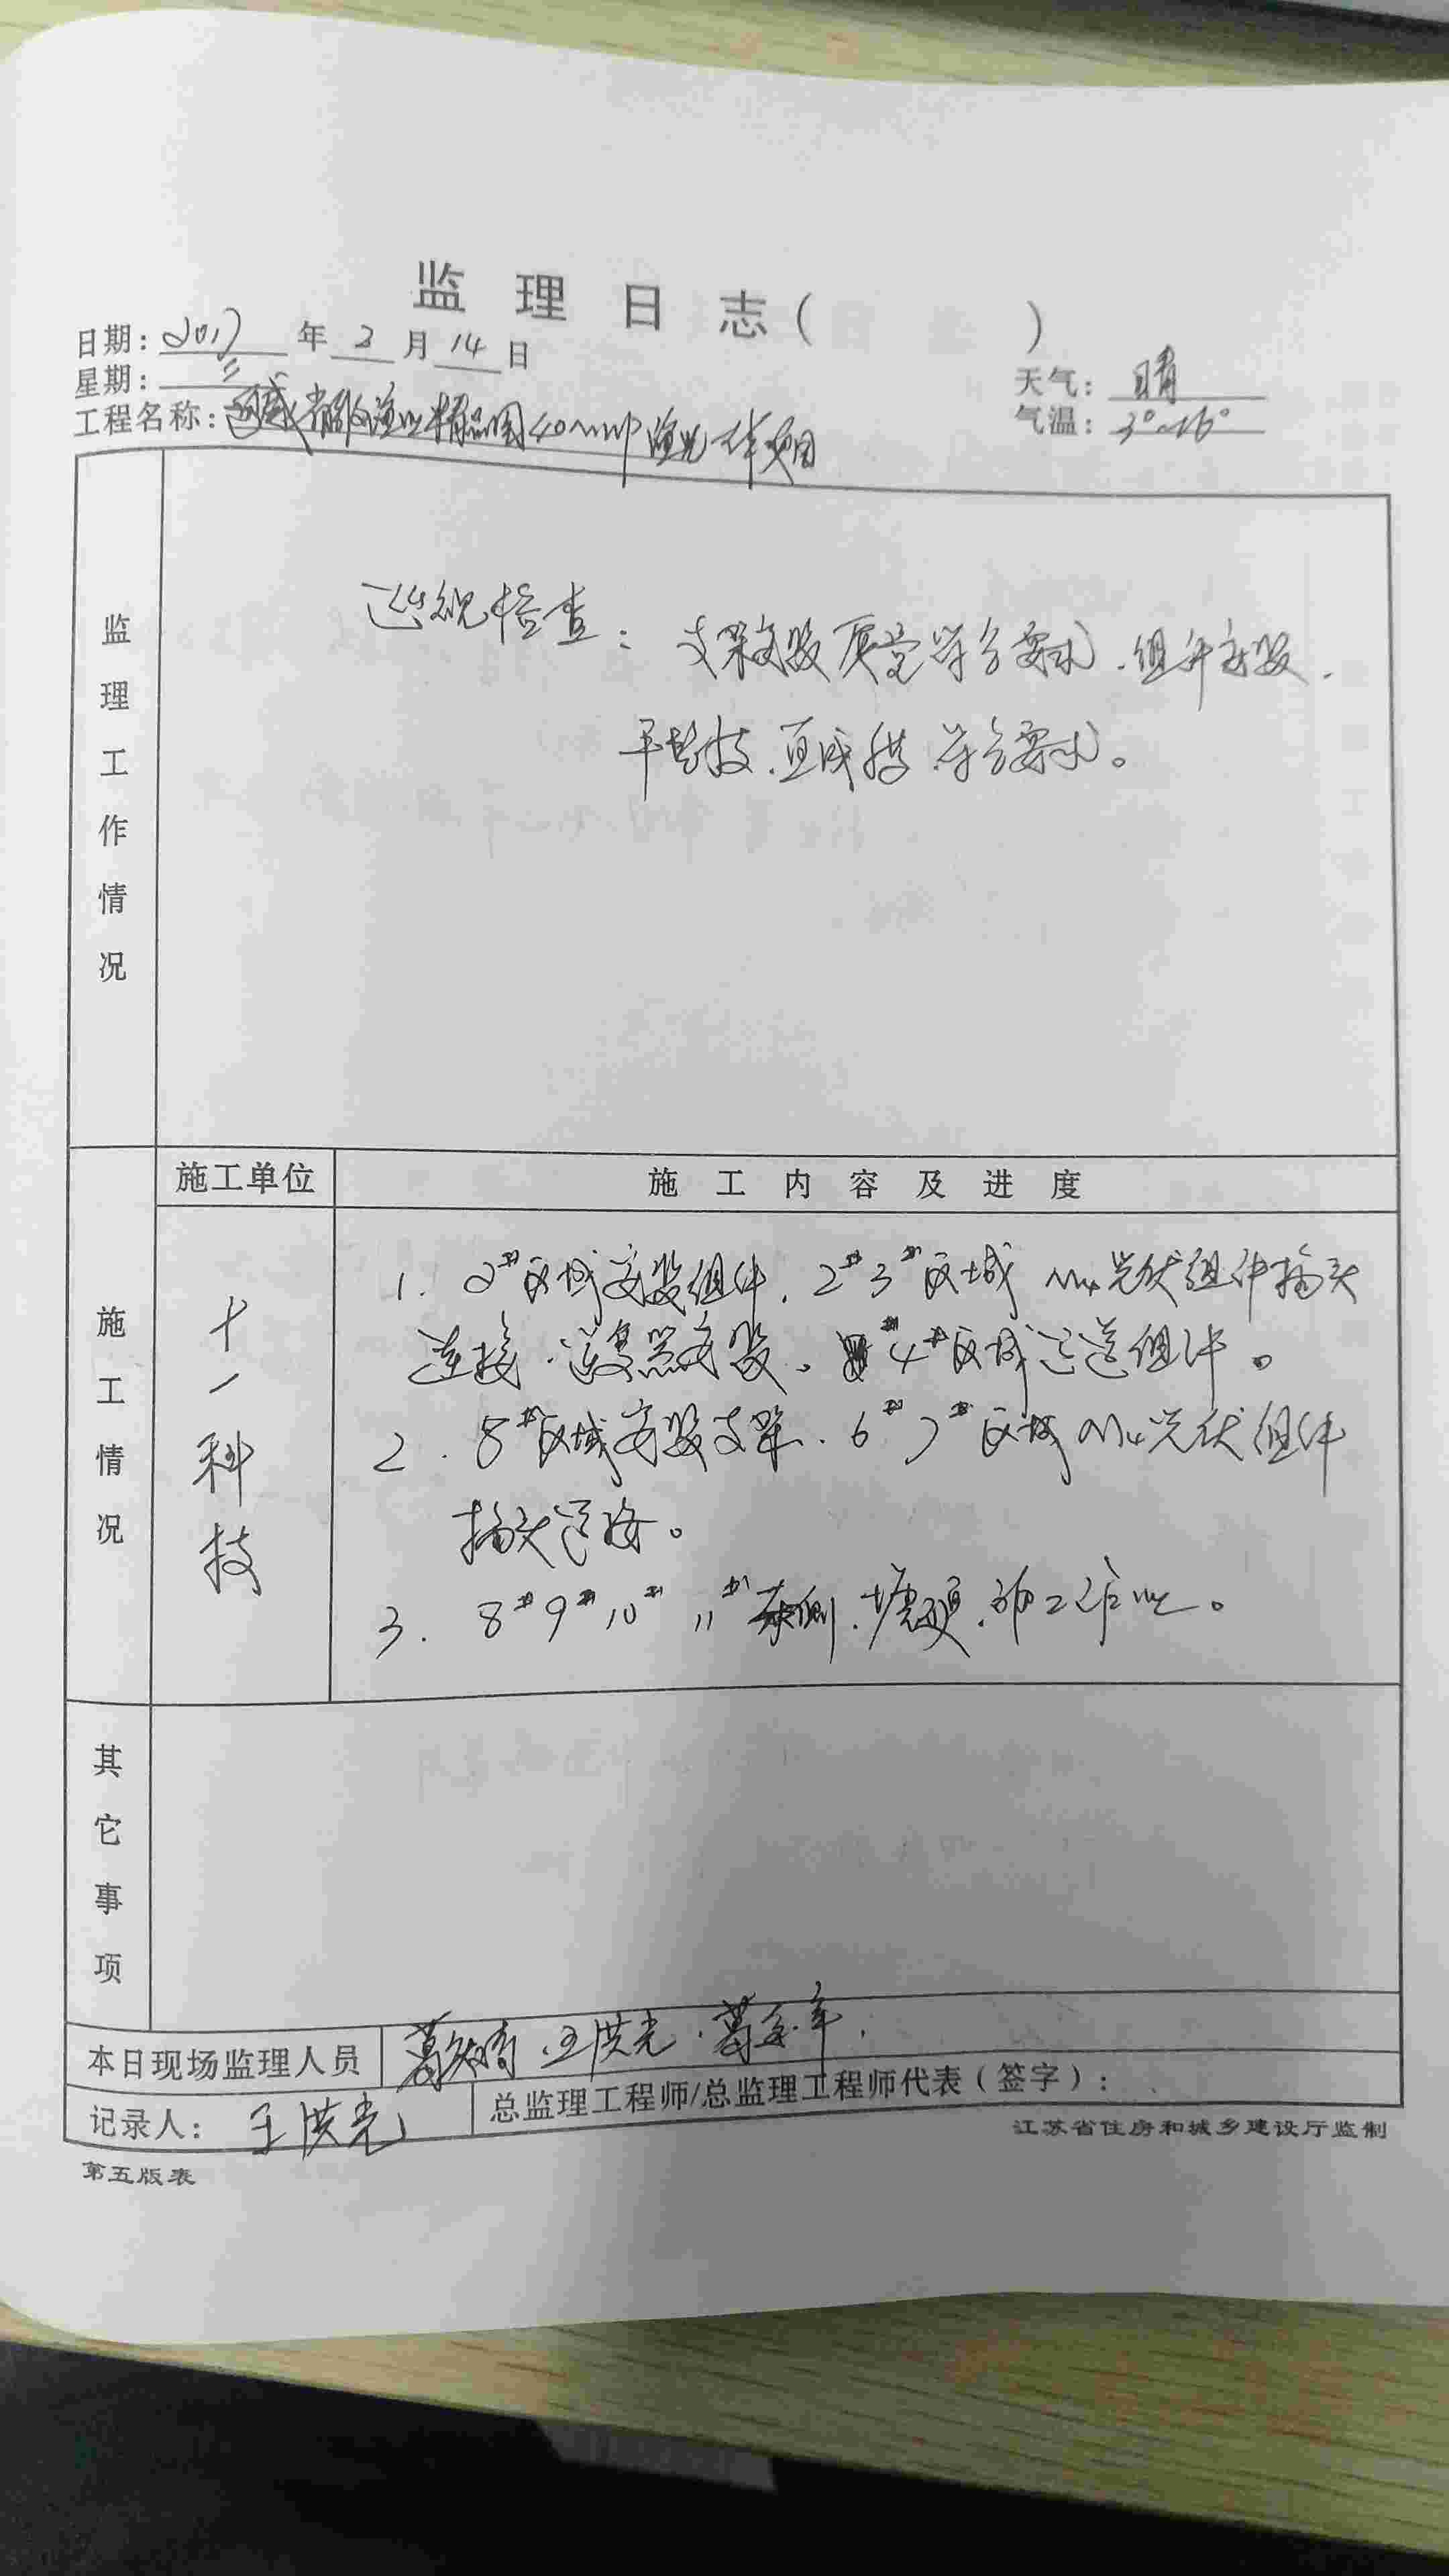 监理日志（ ）
日期：2017年2月14日
星期：二
天气：晴
气温：3°~16°
工程名称：通威 渔业精品园40MWP渔光一体项目
监理工作情况
巡视检查：支架安装 符合要求．组件安装．
平整度． 符合要求。
施工单位
施工内容及进度
施工情况
十一科技
1. 2#区域安装组件．2#3#区域 M4光伏组件插头
连接．逆变器安装。4#区域运送组件。
2. 8#区域安装支架．6#7#区域M4光伏组件
插头连接。
3. 8#9#10#11# 侧．塘 ．施工作业。
其它事项
本日现场监理人员
葛 ．王洪光．葛
记录人：王洪光
总监理工程师/总监理工程师代表（签字）：
江苏省住房和城乡建设厅监制
第五版表